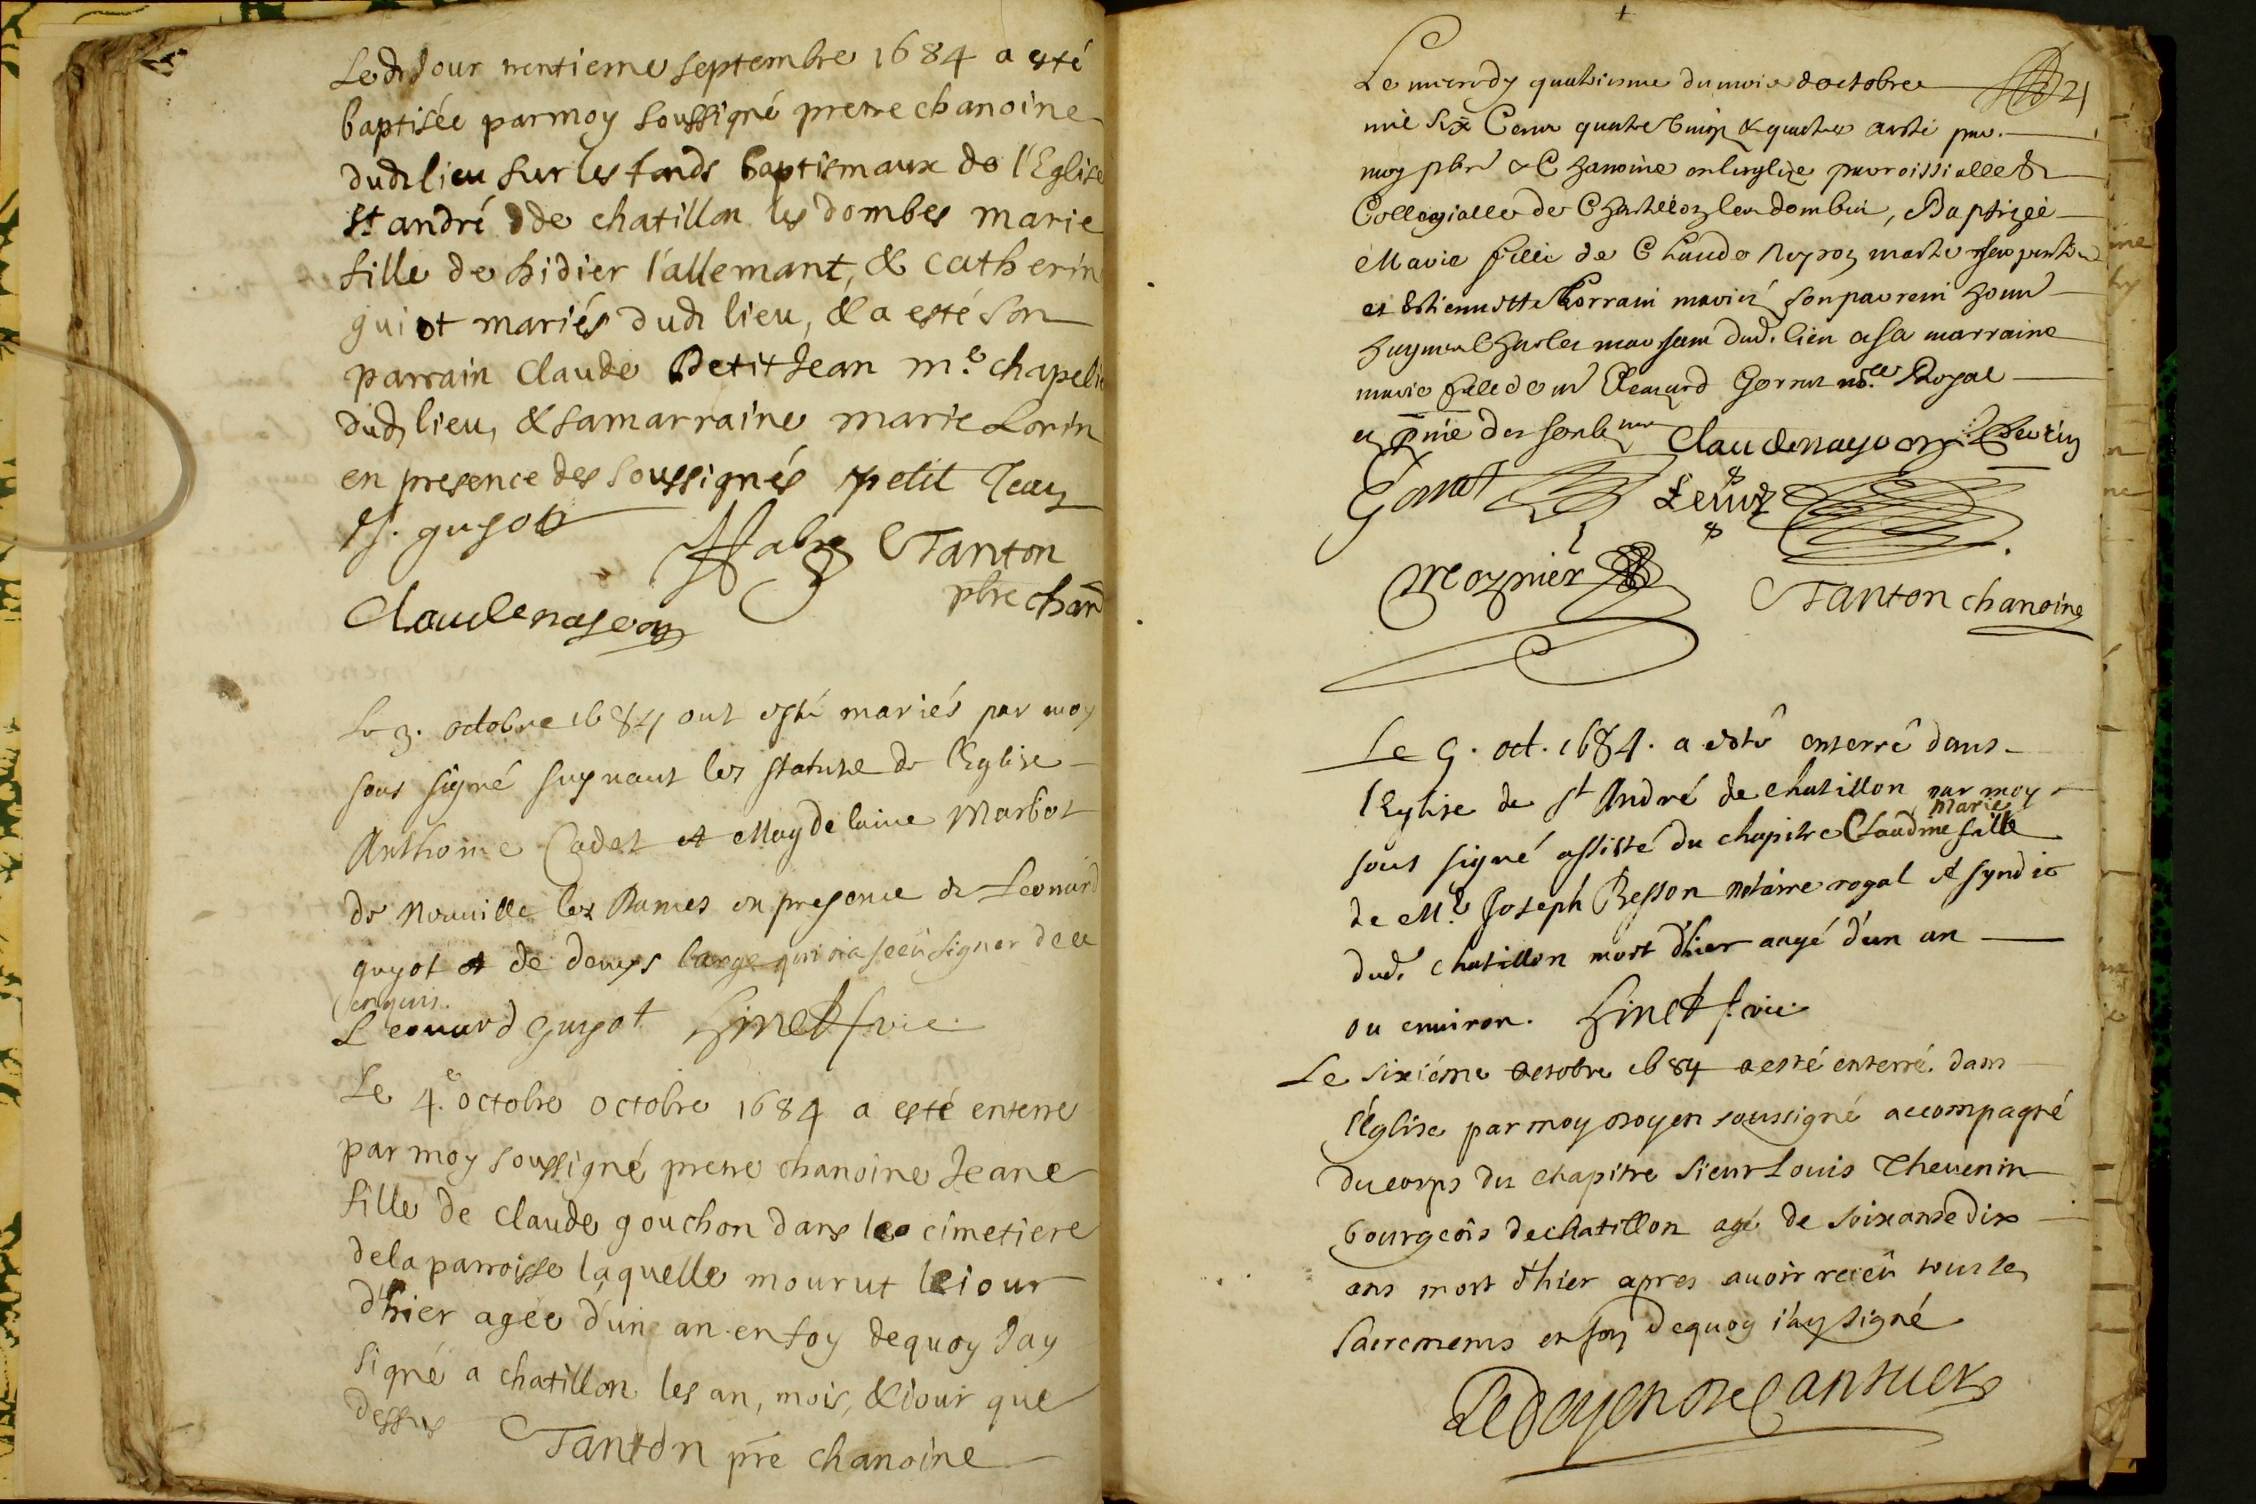 Led Jour trentieme septembre 1684 a esté
baptisée par moy soussigné pretre chanoine
dud lieu sur les fonds baptismaux de l'Eglise
St andré de chatillon les dombes marie
fille de hidier l'allemant, & catherin
guiot mariés dud lieu, & a esté son
parrain Claude Petit Jean m.e chapelie
dud lieu, & sa marraine marie Lorin
en presence des soussignés petit Jean
guyot
Tanton
pbre chan
Claude nayron
Le 3. octobre 1684 ont esté mariés par moy
sous signé suyvant les statuts de l'Eglise
Anthoine Cadet et Magdelaine Marbot
de Neuville les Dames en presence de Leonard
guyot et de denys large qui n'a sceu signer de ce
enquis.
Leonard Guyot Hinet vic.
Le 4.e octobre octobre 1684 a esté enterre
par moy soussigné pretre chanoine Jeane
fille de claude gouchon dans le cimetiere
de la parroisse laquelle mourut le iour
d'hier agée d'un an en foy de quoy Jay
signé a chatillon les an, mois, & iour que
dessus
Tanton pre chanoine
21
Le mercredy quatriesme du mois doctobre
mil six Cent quatre vingt & quatre a esté par
moy pbre & Chanoine en leglize parroissialle &
Collegialle de Chastillon les dombes, Baptizée
Marie fille de Claude Neyron maitre serpentier
et Estiennette Lorrain mariés son parrein
Charles dud. lieu & sa marraine
marie fille de Gonat no.re Royal
et pnce des soub.nes Claude nayron
Gonat
monnier
Tanton chanoine
Le 5. oct. 1684. a esté enterré dans
l'Eglise de St André de chatillon par moy
marie
sous signé assisté du chapitre Claudine fille
de M.e Joseph Besson notaire royal & syndic
dud. chatillon mort d'hier aagé d'un an
ou environ. Hinet vic
Le sixiéme octobre 1684 a esté enterré dans
l'église par moy doyen soussigné accompagné
du corps du chapitre sieur Louis Thevenin
bourgeois de chatillon agé de soixante dix
ans mort d'hier apres avoir receû tous les
sacrements en foy de quoy i'ay signé
Le doyen de